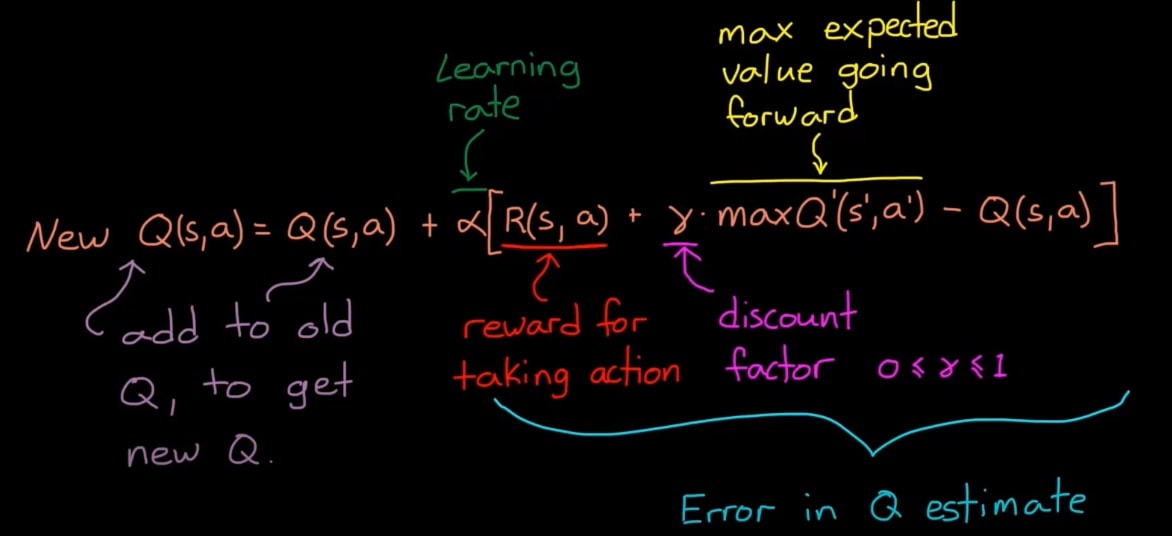 max expected
value going
forward
Learning
rate
New Q(s,a) = Q(s,a) + α[R(s, a) + γ · maxQ'(s',a') − Q(s,a)]
add to old
Q, to get
new Q.
reward for
taking action
discount
factor 0 ≤ γ ≤ 1
Error in Q estimate